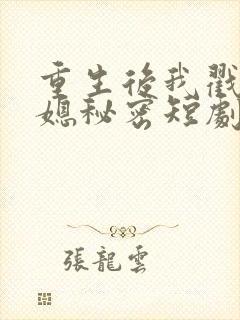 重生後我戳
媳秘密短劇
張龍雲